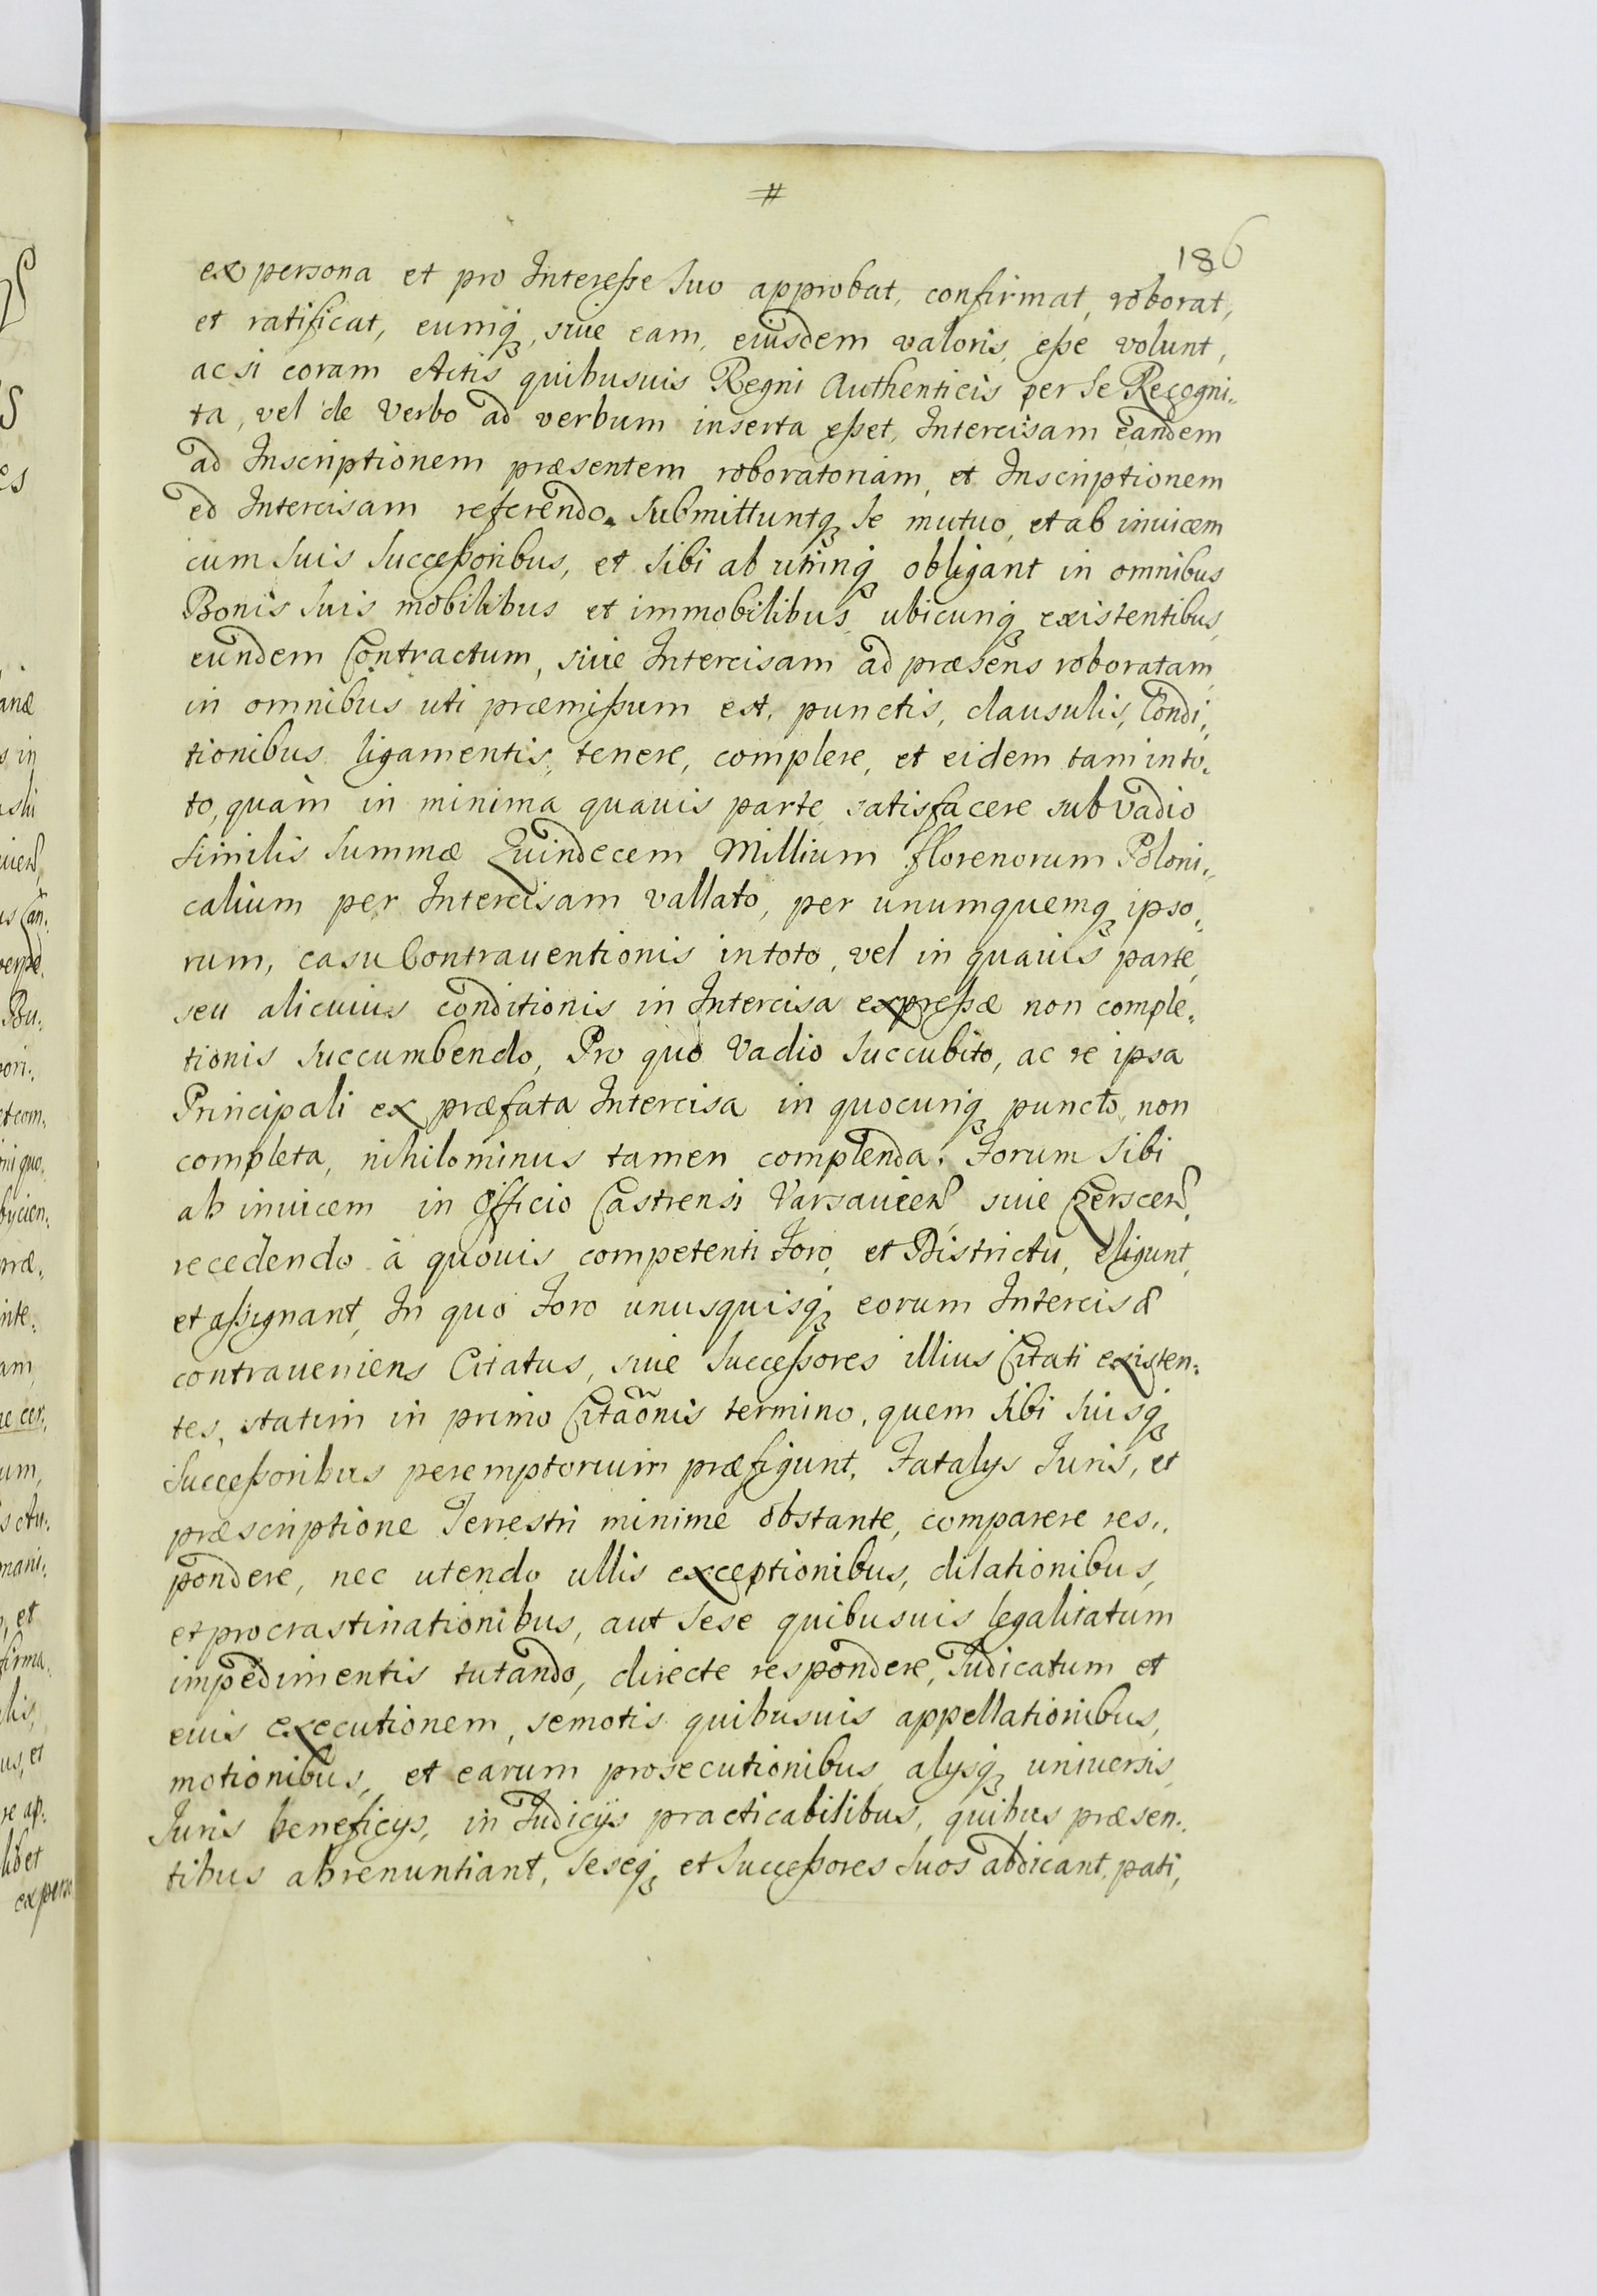 #
186
ex persona et pro Interesse Suo approbat, confirmat, roborat,
et ratificat, eumq, siue eam, eiusdem valoris, esse volunt,
ac si coram Actis quibusuis Regni Authenticis per Se Recogni„
ta, vel de Verbo ad verbum inserta esset, Intercisam eandem
ad Inscriptionem præsentem roboratoriam, et Inscriptionem
ad Intercisam referendo. Submittuntq Se mutuo, et ab inuicem
cum Suis Successoribus, et Sibi ab utrinq obligant in omnibus
Bonis Suis mobilibus et immobilibus ubicunq existentibus,
eundem Contractum, siue Intercisam ad præsens roboratam,
in omnibus uti præmissum est, punctis, clausulis, Condi„
tionibus ligamentis, tenere, complere, et eidem tam in to„
to, quàm in minima quauis parte satisfacere sub Vadio
Similis Summæ Quindecem Millium florenorum Poloni„
calium per Intercisam vallato, per unumquemq ipso„
rum, casu Contrauentionis in toto, vel in quauis parte,
seu alicuius conditionis in Intercisa expressæ non comple„
tionis Succumbendo, Pro quo Vadio Succubito, ac re ipsa
Principali ex præfata Intercisa in quocunq puncto non
completa, nihilominus tamen complenda. Forum Sibi
ab inuicem in Officio Castrensi Varsauien siue Czerscen
recedendo à quouis competenti Foro, et Districtu, eligunt,
et assignant, In quo Foro unusquisq eorum Intercisæ
contraueniens Citatus, siue Successores illius Citati existen„
tes, statim in primo Citaõnis termino, quem Sibi Suisq
Successoribus peremptorium præfigunt, Fatalys Iuris, et
præscriptione Terrestri minime obstante, comparere res„
pondere, nec utendo ullis exceptionibus, dilationibus,
et procrastinationibus, aut Sese quibusuis legalitatum
impedimentis tutando, directe respondere, Iudicatum et
euis executionem, semotis quibusuis appellationibus,
motionibus, et earum prosecutionibus alysq uniuersis
Iuris beneficys, in Iudicijs practicabilibus, quibus præsen„
tibus abrenuntiant, Seseq et Successores Suos abdicant, pati,